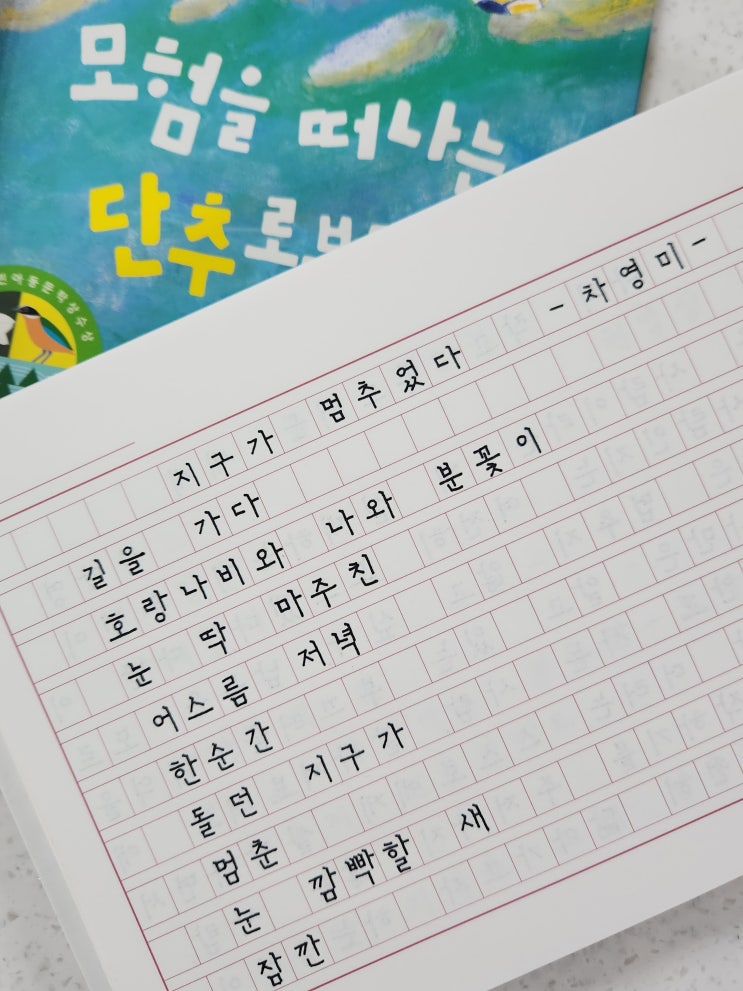 모험을 떠나는
단추로보
린아동문학상수상
지구가 멈추었다
-차영미-
길을 가다
호랑나비와 나와 분꽃이
눈 딱 마주친
어스름 저녁
한순간
돌던 지구가
멈춘
눈 깜빡할 새
잠깐